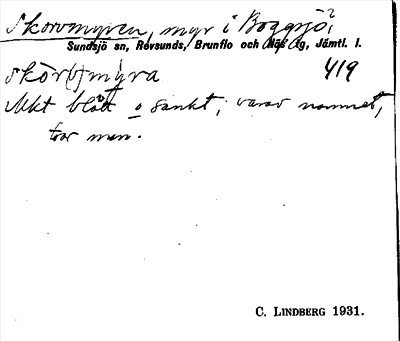 Skorvmyren, myr i Boggsjö,
Sundsjö sn, Revsunds, Brunflo och Näs tg, Jämtl. l.
skò̀r(v)mỳra 419
Mkt blött o sankt; varav namnet,
tror man.
C. LINDBERG 1931.